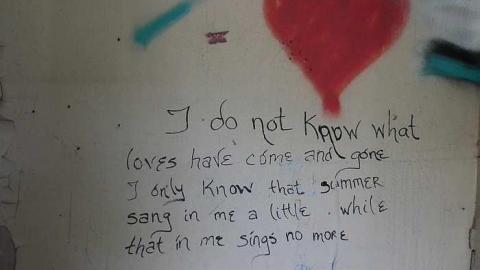 I do not know what
loves have come and gone
I only know that summer
sang in me a little. while
that in me sings no more